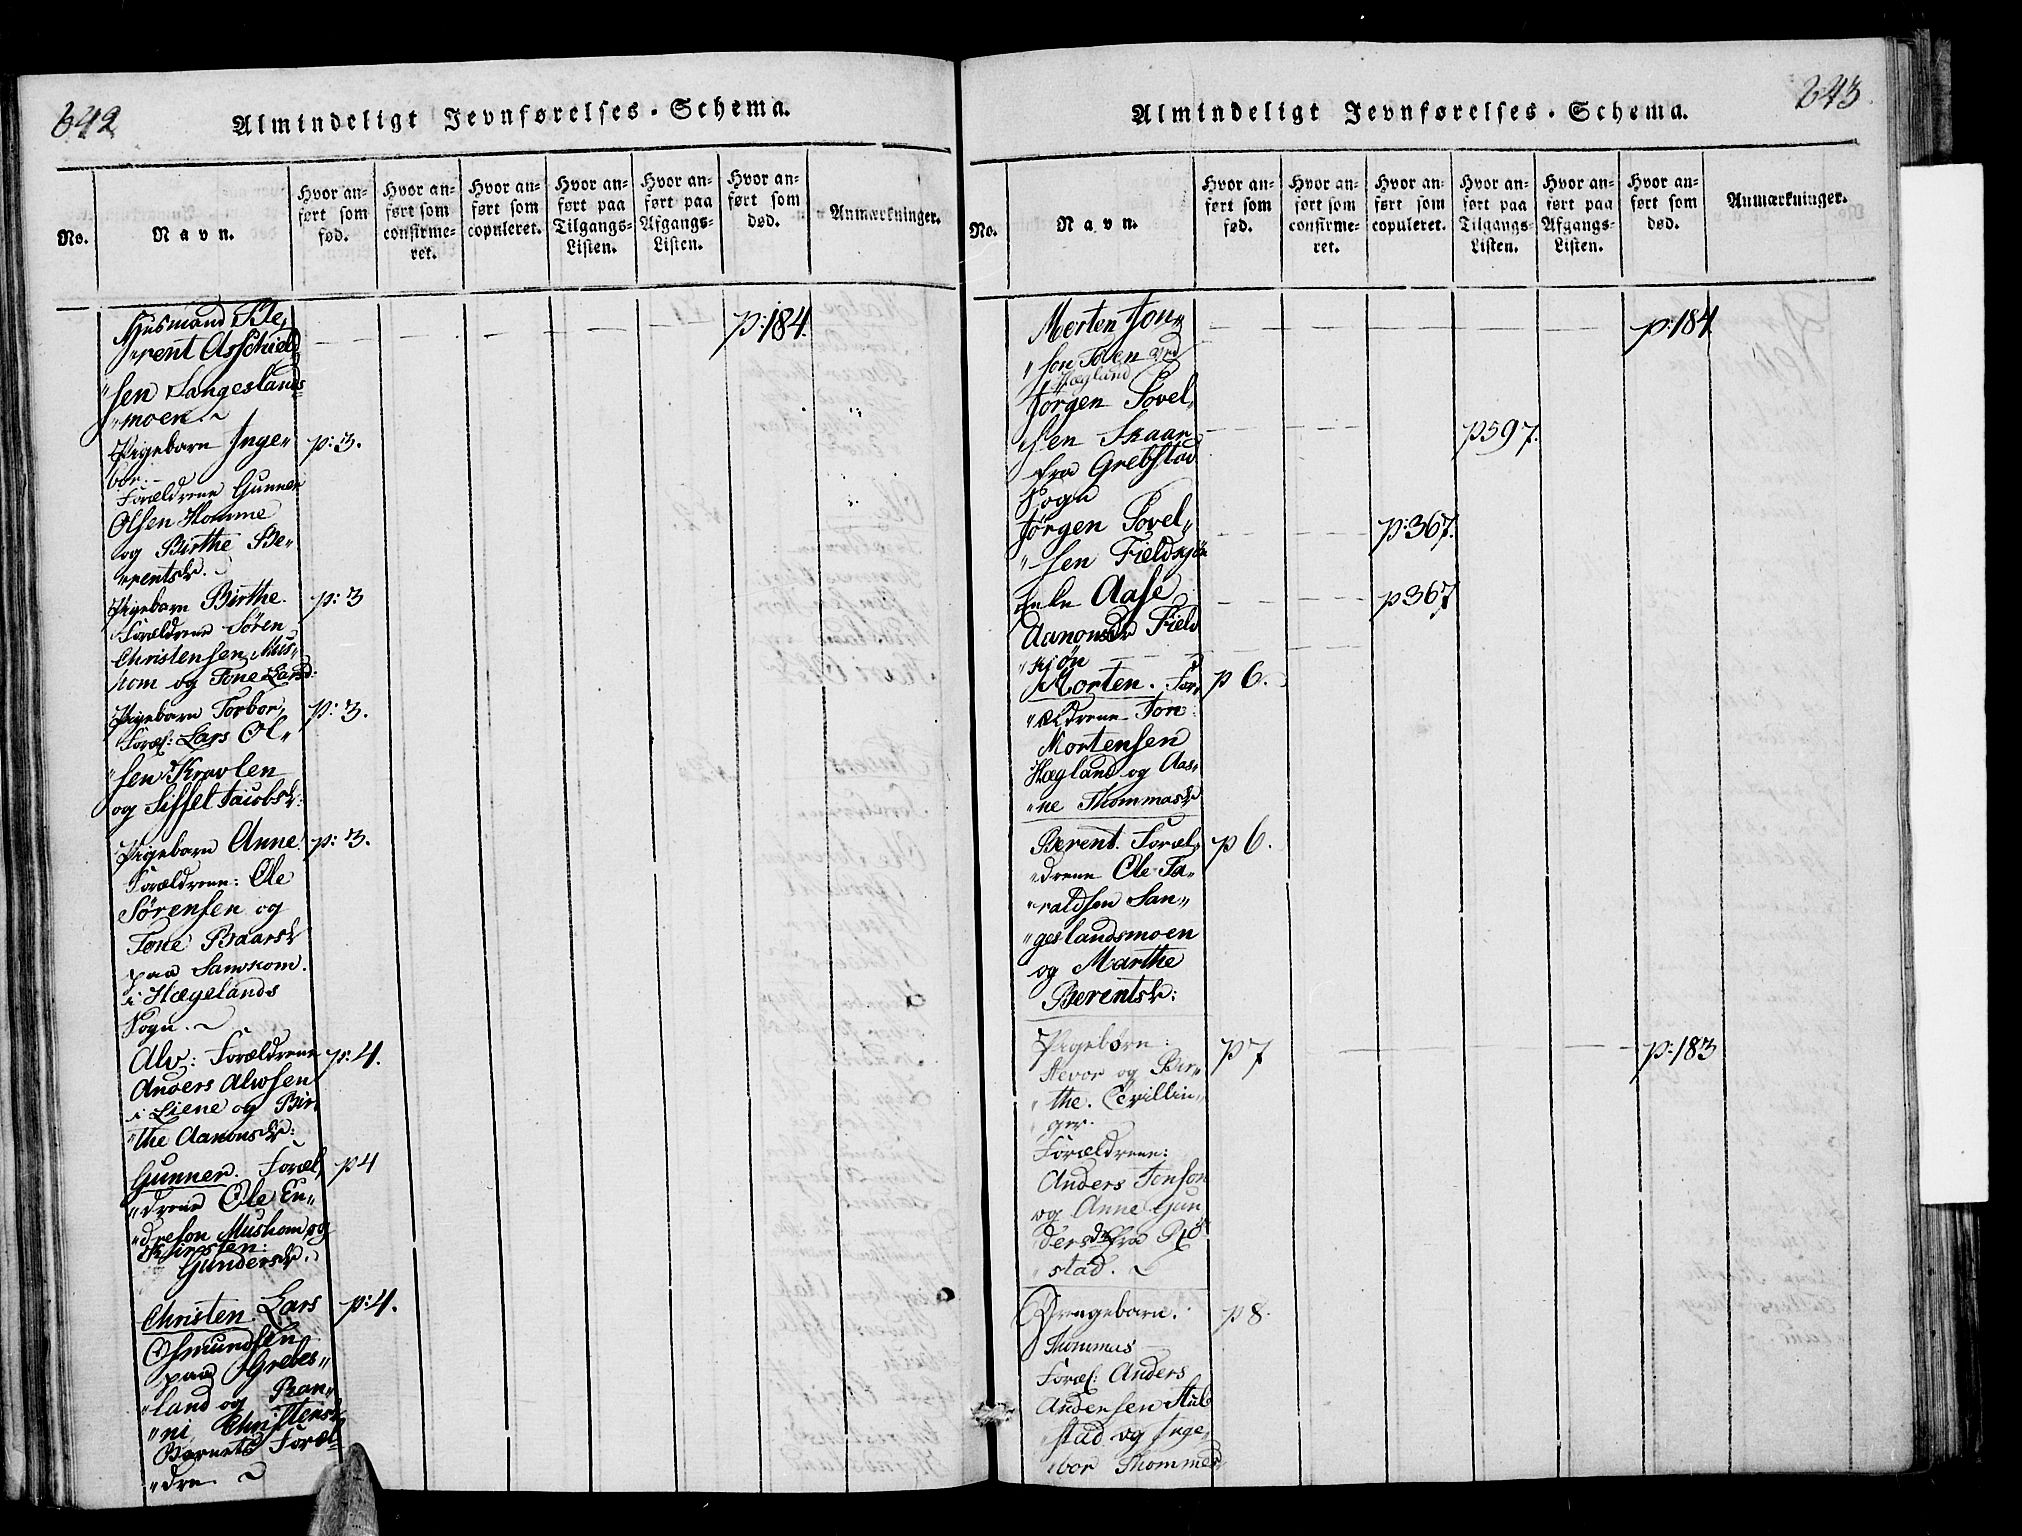 642
Almindeligt Jevnførelses-Schema.
No.
Navn.
Hvor an-
ført som
fød.
Hvor an-
ført som
confirme-
ret.
Hvor an-
ført som
copuleret.
Hvor an-
ført paa
Tilgangs-
Listen.
Hvor an-
ført paa
Afgangs-
Listen.
Hvor an-
ført som
død.
Anmærkninger.
Husmand Be-
rent Asschield p:184.
sen Langeslands
moen.
Pigebarn Inge- p:3.
bor.
Forældrene Gunner
Olsen Homme
og Birthe Be-
rentsdr.
Pigebarn Birthe. p:3
Forældrene Søren
Christensen Mus-
kom og Tone Larsd:
Pigebarn Torbor, p:3.
Foræl: Lars Ol-
sen Kravlen
og Siffel Jacobsdr:
Pigebarn Anne. p:3.
Forældrene: Ole
Sørensen og
Tone Baarsdr
paa
i Hægelands
Sogn.
Alv: Forældrene p:4.
Anders Alvsen
i Liene og Bir-
the Aanonsdr:
Gunner. Foræl- p4
drene Ole En-
dreson Muskom og
Kirsten:
Gundersdr.
Christen. Lars p:4.
Osmundsen
paa Grebes-
land og Ran-
ni Christensdr
Barnets Foræl-
dre
643.
Almindeligt Jevnførelses-Schema.
No.
Navn.
Hvor an-
ført som
fød.
Hvor an-
ført som
confirme-
ret.
Hvor an-
ført som
copuleret.
Hvor an-
ført paa
Tilgangs-
Listen.
Hvor an-
ført paa
Afgangs-
Listen.
Hvor an-
ført som
død.
Anmærkninger.
Morten Jon- p:184
son Toven ved
Hægland
Jørgen Sovel-
sen Skaar p597.
fra Grebstad
Sogn
Jørgen Sovel- p:367.
sen Fieldkjøn
Aase p367
Aanonsdr Field
kjøn
Morten. For- p 6.
ældrene Jon
Mortensen
Hægland og Aas-
ne Thommasdr
Berent. Foræl- p 6.
drene Ole Ta-
raldsen San-
geslandsmoen
og Marthe
Berentsdr:
Pigebørn: p 7 p:183
Hevor og Bir-
the. Tvillin-
ger.
Forældrene:
Anders Jonson
og Anne Gun
dersdr fra Rø-
stad.
Drengebarn: p 8.
Thommas
Foræl: Anders
Andersen Stub
stad og Inge
bor Thommesd